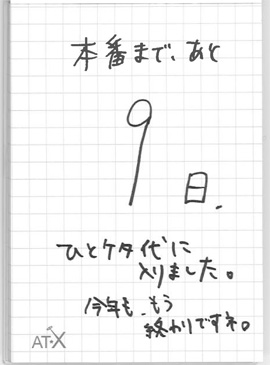 本番まで、あと
9
日.
ひとケタ代に
入りました。
今年も、もう
終わりですネ。
AT-X